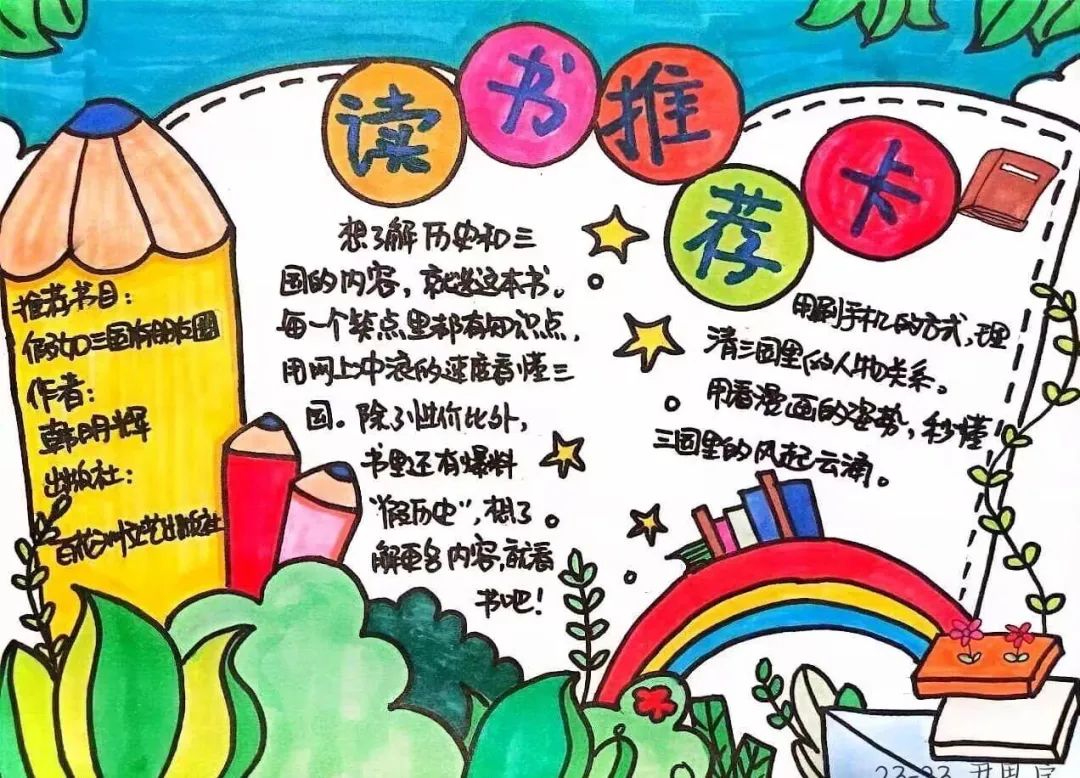 读书推荐卡
推荐书目：
假如三国有朋友圈
作者：
韩明辉
出版社：
百花洲文艺出版社
想了解历史和三
国的内容，就选这本书。
每一个笑点里都有知识点，
用网上冲浪的速度看懂三
国。除了性价比外，
书里还有爆料
“假历史”，想了
解更多内容，就看
书吧！
用刷手机的方式，理
清三国里的人物关系。
用看漫画的姿势，秒懂
三国里的风起云涌。